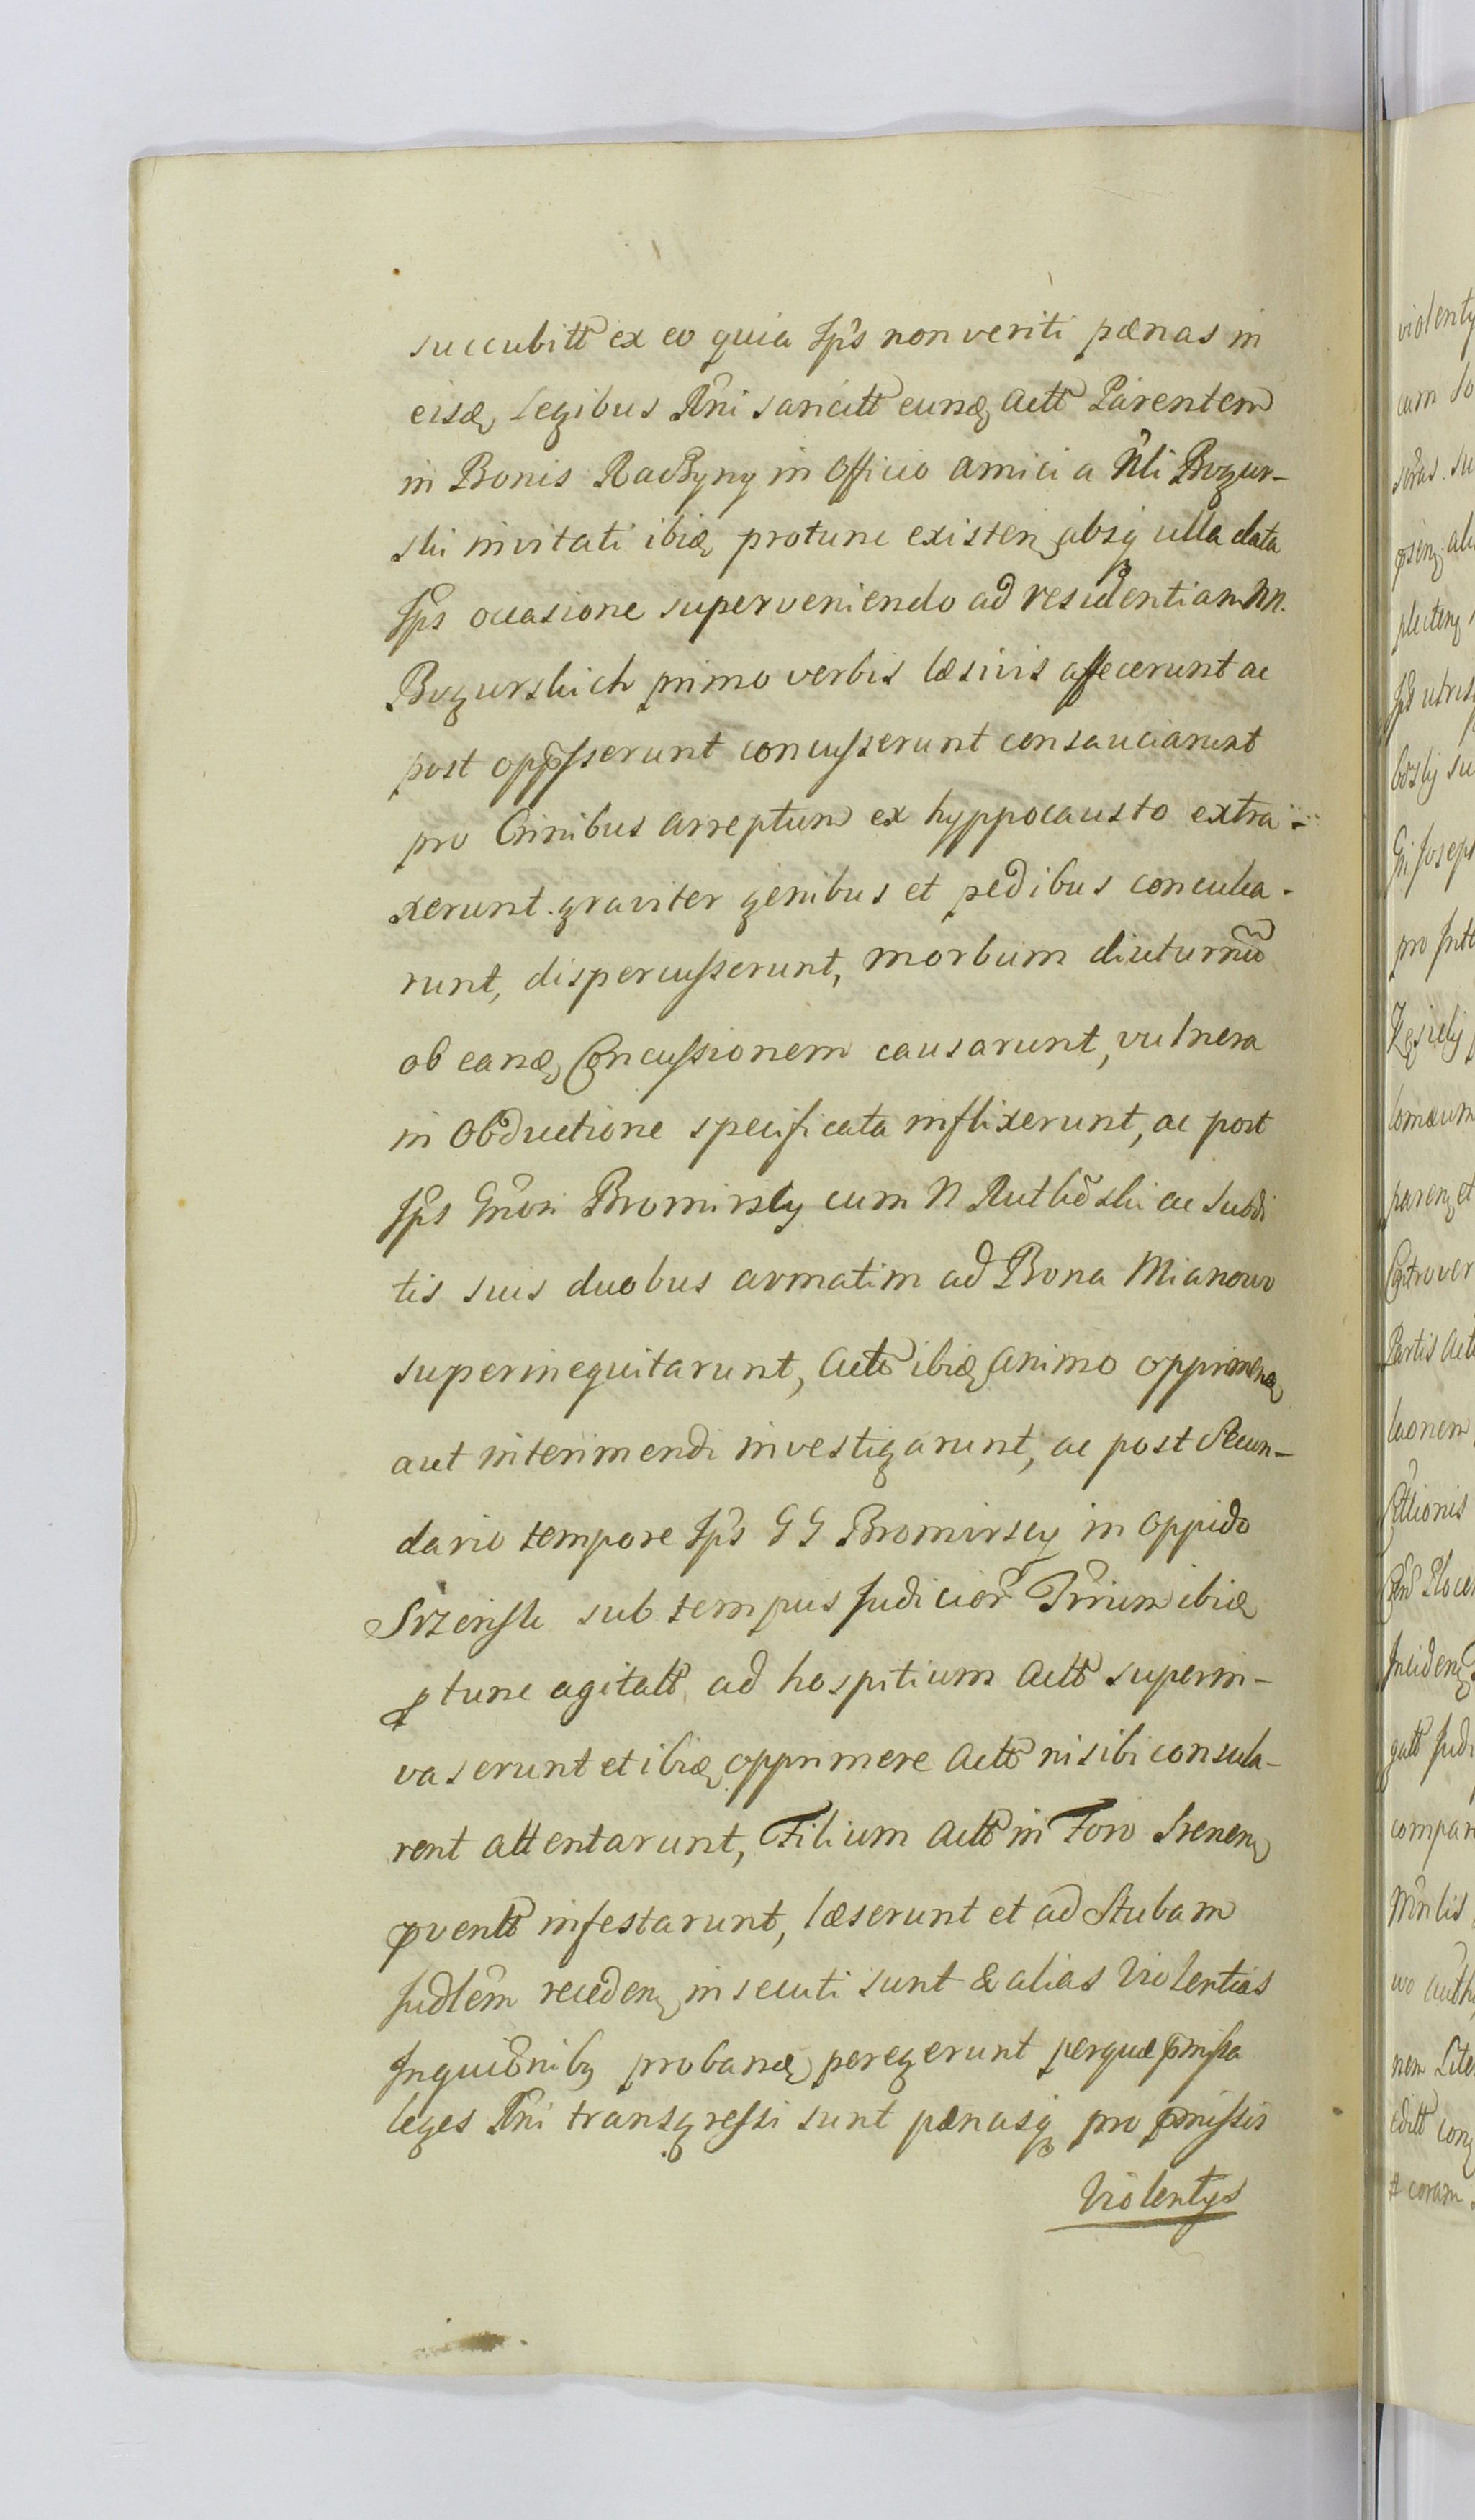 succubitt ex eo quia Ips non veriti pænas in
eisdẽ Legibus Rni sancitt eundẽ Actt Parentem
in Bonis Radzyny in Officio amici a Nli Bogur-
ski invitati ibidẽ protunc existen absq ulla data
Ips occasione superveniendo ad residentiam NN.
Bogurskich primo verbis læsivis affecerunt ac
post opp̃sserunt concusserunt consauciarunt
pro Crinibus arreptum ex hyppocausto extra-
xerunt graviter genibus et pedibus conculca-
runt, dispercusserunt, morbum diuturnũ
ob eandẽ Concussionem causarunt, vulnera
in Obductione specificata inflixerunt, ac post
Ips Gnosi Bromirsky cum N Rutkõski ac Subdi
tis suis duobus armatim ad Bona Mianowo
superinequitarunt, Actt ibidẽ animo opprimendẽ
aut interimendi investigarunt, ac post Secun-
dario tempore Ips GG Bromirscy in Oppido
Srzensk sub tempus Judicior Trrium ibidẽ
ptunc agitatt ad hospitium Actt superin-
vaserunt et ibidẽ opprimere Actt ni sibi consula-
rent attentarunt, Filium Actt in Foro Srenen
pventt infestarunt, læserunt et ad Stubam
Judlem receden insecuti sunt & alias Violentias
Inquiõnibq probandẽ peregerunt perquæ p̃missa
leges Rni transgressi sunt pænasq pro p̃missis
Violentys
violenty
cum
plecten
Gri Joseph
pro
paren et
Controver
Partis Actt
Incliden
compar
coram